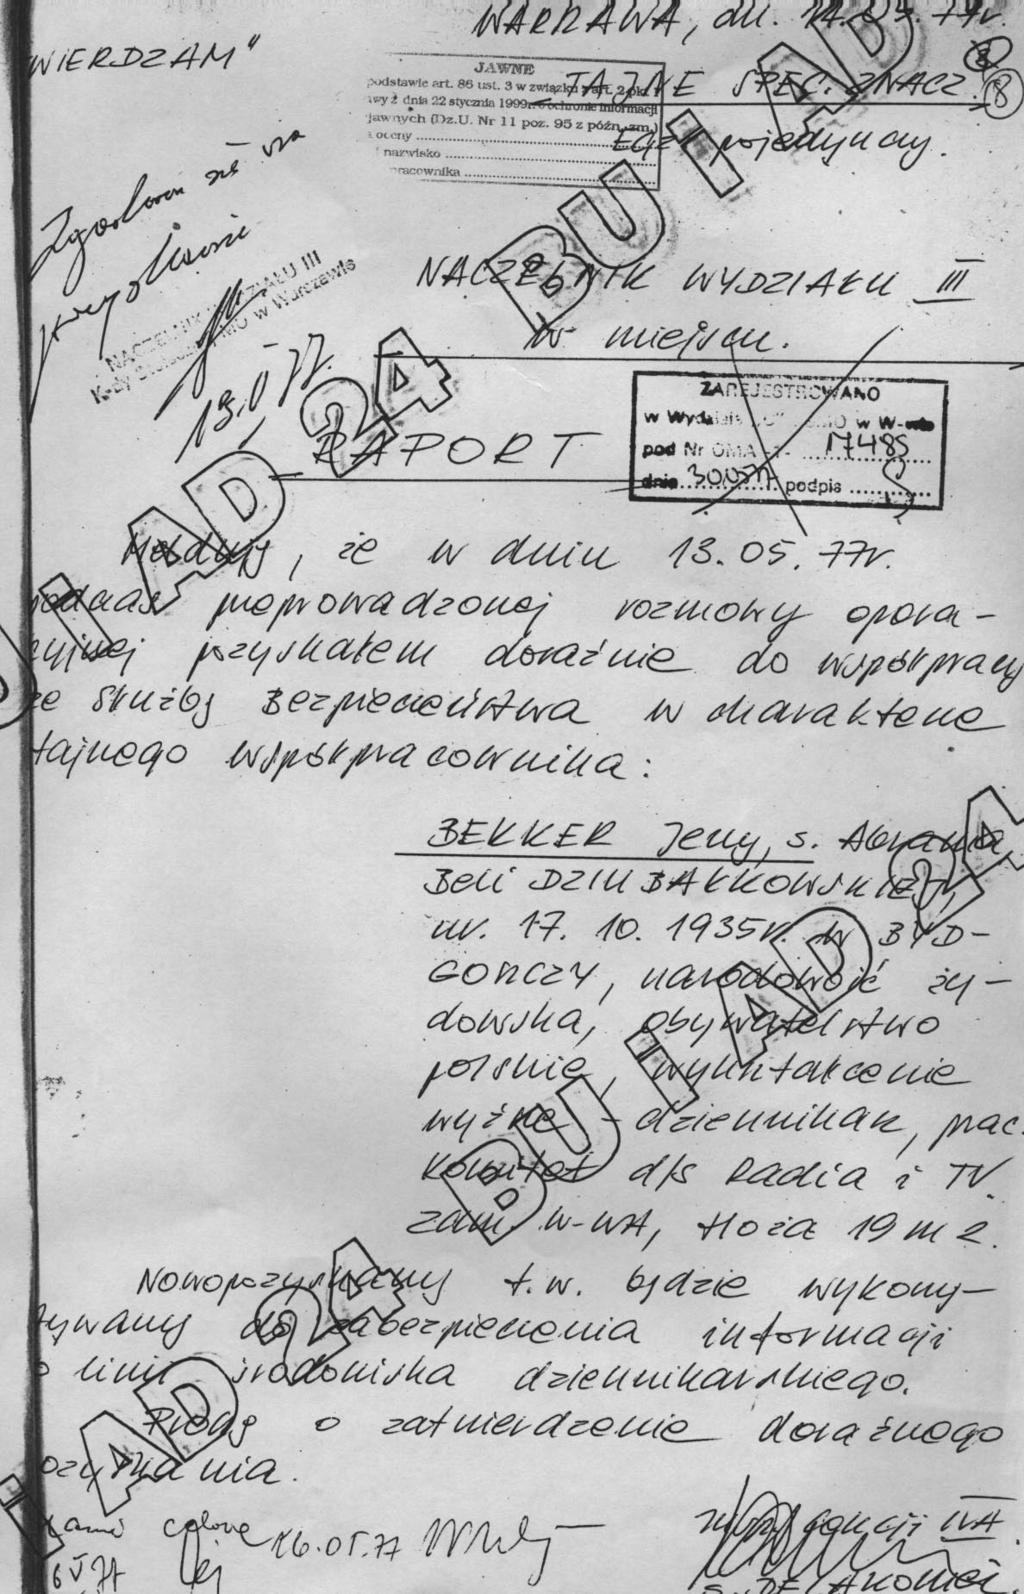 WARSZAWA, dn. 14.05.77r.
WIERDZAM"
JAWNE
podstawie art. 86 ust. 3 w związku z art. 2 pkt
awy z dnia 22 stycznia 1999r. o ochronie informacji
jawnych (Dz.U. Nr 11 poz. 95 z późn. zm.)
oceny
nazwisko
racownika
TAJNE SPEC. ZNACZ.
8
Egz. pojedynczy.
NACZELNIK WYDZIAŁU III
w Warszawie
19.V 77.
NACZELNIK WYDZIAŁU III
w miejscu.
ZAREJESTROWANO
w W-wie
pod Nr 17485
dnia 30.05.77 podpis
RAPORT
Melduję, że w dniu 13.05.77r.
podczas przeprowadzonej rozmowy opera-
cyjnej pozyskałem doraźnie do współpracy
ze Służbą Bezpieczeństwa w charakterze
tajnego współpracownika:
BEKKER Jerzy, s. Abrama
Beli DZIUBAŁKOWSKIEJ,
ur. 17.10.1935r. w BYD-
GOSZCZY, narodowość ży-
dowska, obywatelstwo
polskie, wykształcenie
wyższe - dziennikarz, prac.
Komitet d/s Radia i TV.
zam. W-WA, Hoża 19 m 2.
Nowopozyskany t.w. będzie wykorzy-
tywany do zabezpieczenia informacji
o linii środowiska dziennikarskiego.
Proszę o zatwierdzenie doraźnego
ozyskania.
celowe
16.05.77
6 V 77
sekcji IVA
BU i AD 24
BU i AD 24
BU i AD 24